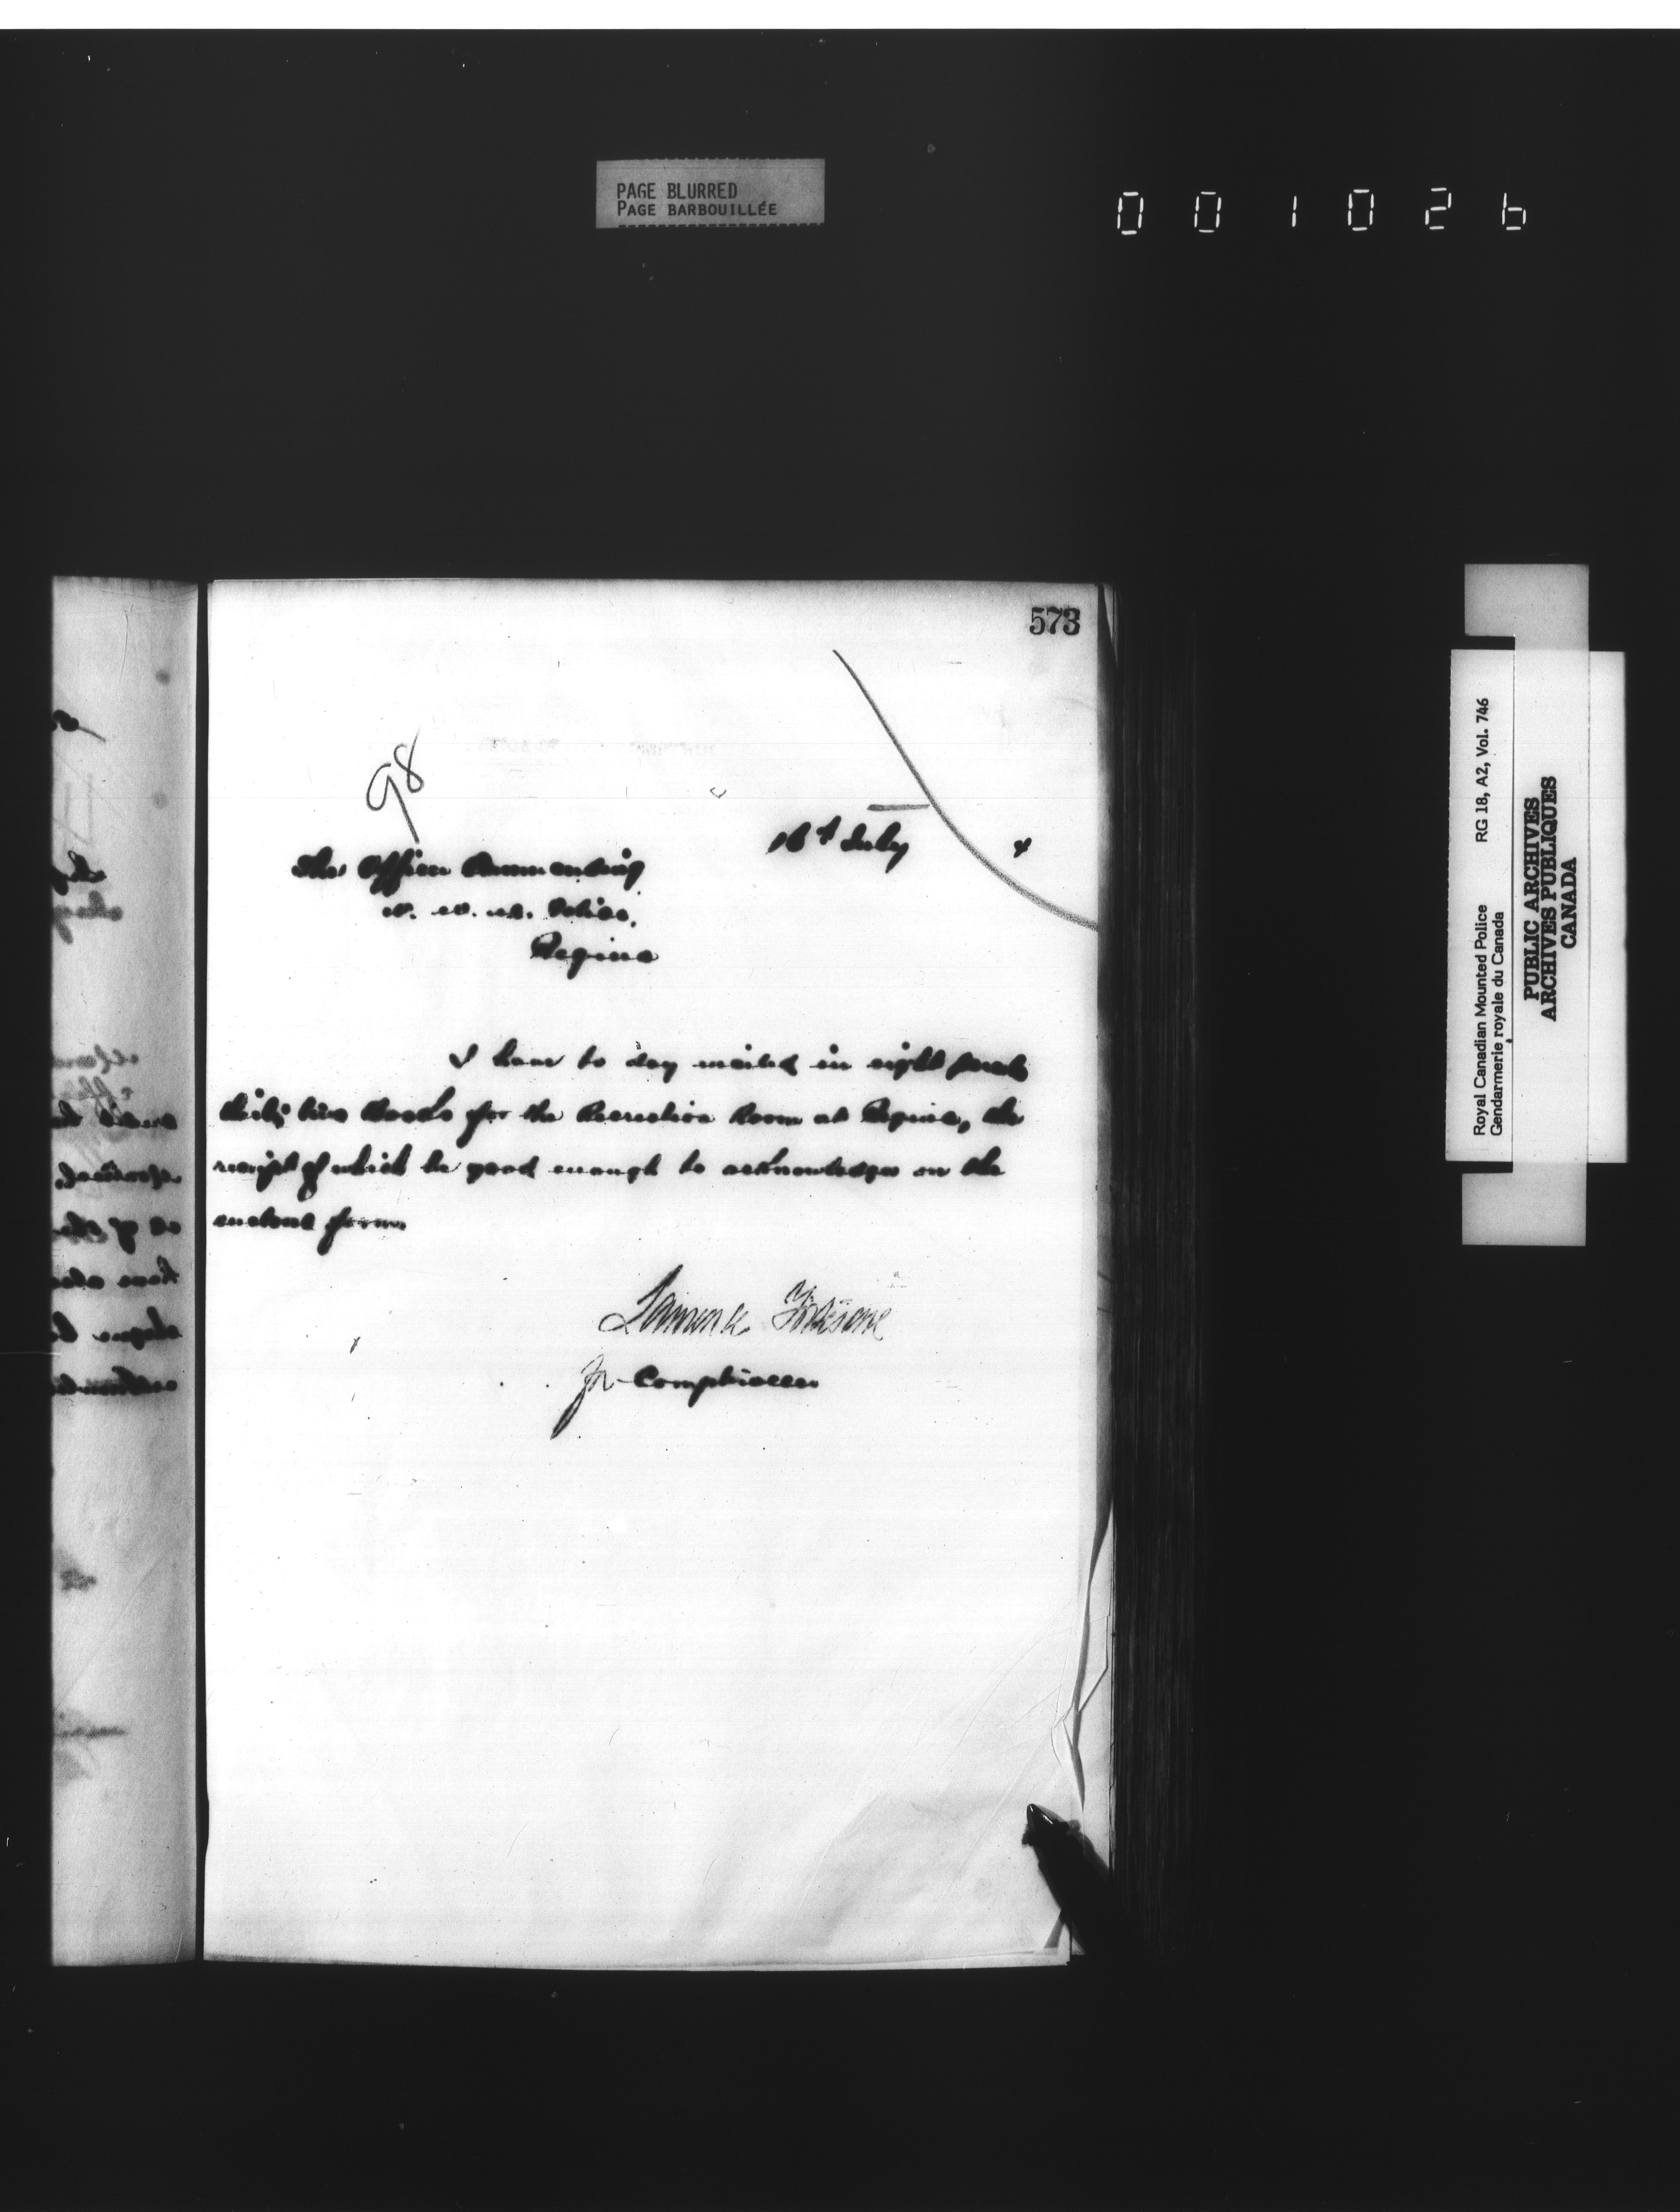 PAGE BLURRED
PAGE BARBOUILLÉE
001026
573
98
16th July
The Officer Commanding
N. W. M. Police,
Regina
I have to day mailed in eight parcels
thirty two Books for the Recreation Room at Regina, the
receipt of which be good enough to acknowledge on the
enclosed form
Fortescue
for Comptroller
Royal Canadian Mounted Police RG 18, A2, Vol. 746
Gendarmerie royale du Canada
PUBLIC ARCHIVES
ARCHIVES PUBLIQUES
CANADA